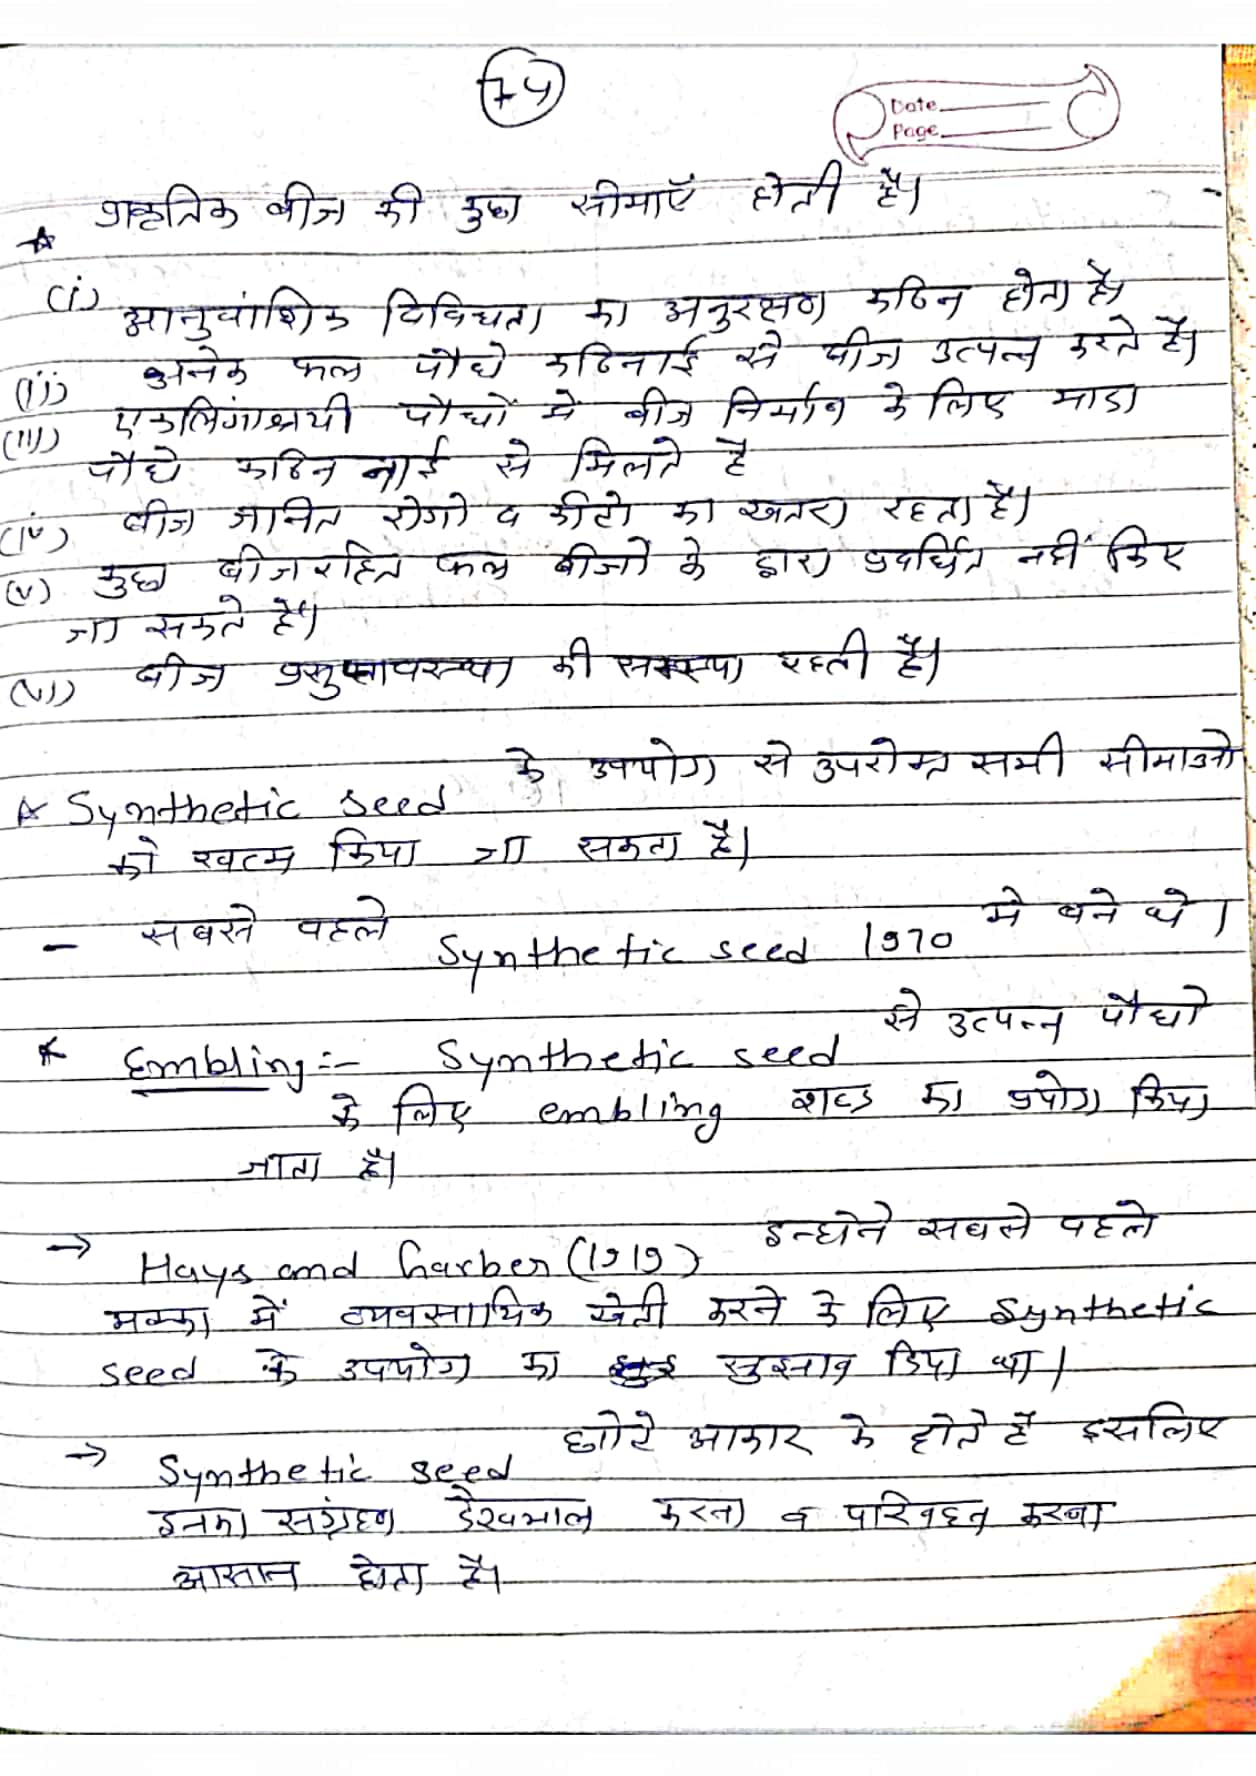 74
Date
Page
प्राकृतिक बीज की कुछ सीमाएँ होती है।
(i) आनुवांशिक विविधता का अनुरक्षण कठिन होता है।
(ii) अनेक फल पौधे कठिनाई से बीज उत्पन्न करते है।
(iii) एकलिंगाश्रयी पौधों में बीज निर्माण के लिए मादा
पौधे कठिन नाई से मिलते है
(iv) बीज जनित रोगो व कीटो का खतरा रहता है।
(v) कुछ बीजरहित फल बीजों के द्वारा प्रवर्धित नहीं किए
जा सकते है।
(vi) बीज प्रसुप्तावस्था की समस्या रहती है।
★ Synthetic seed के उपयोग से उपरोक्त सभी सीमाओ
को खत्म किया जा सकता है।
- सबसे पहले Synthetic seed 1970 मे बने थे।
★ Embling:- Synthetic seed से उत्पन्न पौधो
के लिए embling शब्द का प्रयोग किया
जाता है।
→ Hays and Garber (1919) इन्होने सबसे पहले
मक्का में व्यवसायिक खेती करने के लिए Synthetic
seed के उपयोग का सुझाव दिया था।
→ Synthetic seed छोटे आकार के होते है इसलिए
इनका संग्रहण देखभाल करना व परिवहन करना
आसान होता है।